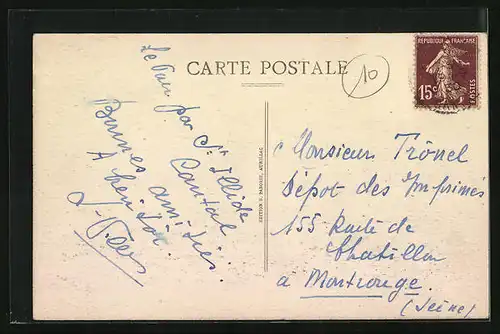 CARTE POSTALE
10
REPUBLIQUE FRANÇAISE
15c
POSTES
Le par St Illide
Cantal
Bonnes amitiés.
A bientôt.
EDITION E. PARROUE, AURILLAC
Monsieur Tronel
Dépôt des Imprimés
155 Route de
Chatillon
à Montrouge.
(Seine)